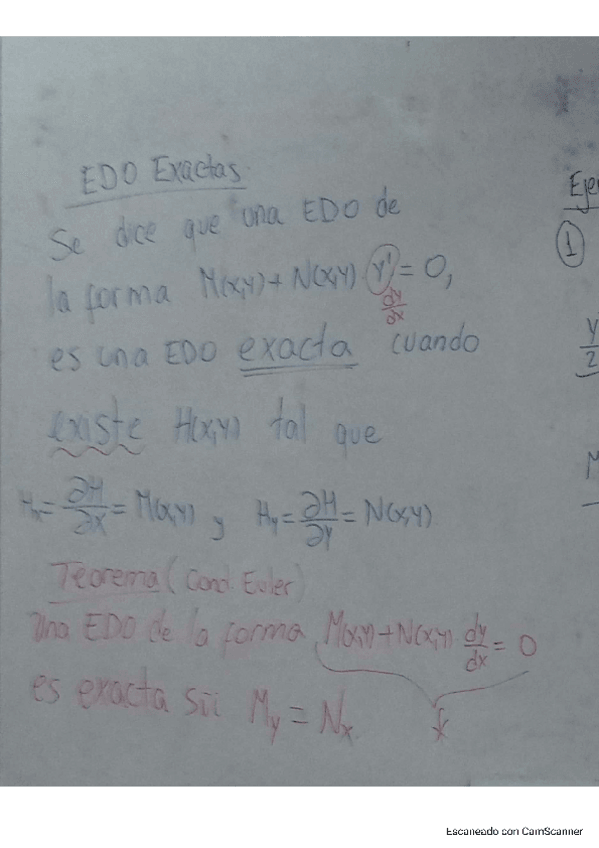 EDO Exactas
Se dice que una EDO de
la forma M(x,y)+N(x,y) y' = 0,
dy/dx
es una EDO exacta cuando
existe H(x,y) tal que
Hx = ∂H/∂x = M(x,y) y Hy = ∂H/∂y = N(x,y)
Teorema (Cond. Euler)
Una EDO de la forma M(x,y)+N(x,y) dy/dx = 0
es exacta sii My = Nx
*
Eje
1
y/2
M
Escaneado con CamScanner